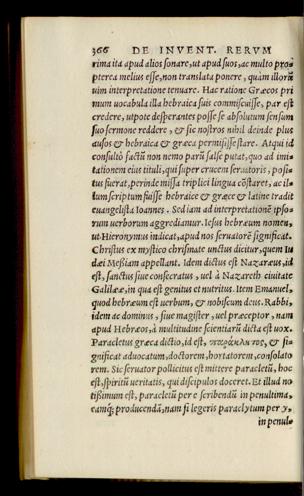 366 DE INVENT. RERVM
rima ita apud alios sonare, ut apud suos, ac multo pro-
pterea melius esse, non translata ponere, quàm illorũ
uim interpretatione tenuare. Hac ratione Græcos pri
mum uocabula illa hebraica suis commiscuisse, par est
credere, utpote desperantes posse se absolutum sensum
suo sermone reddere, & sic nostros nihil deinde plus
ausos & hebraica & græca permisisse stare. Atqui id
consultò factũ non nemo parũ salse putat, quo ad imi
tationem eius tituli, qui super crucem seruatoris, posi-
tus fuerat, perinde missa triplici lingua cõstaret, ac il-
lum scriptum fuisse hebraice & græce & latine tradit
euangelista Ioannes. Sed iam ad interpretationẽ ipso-
rum uerborum aggrediamur. Iesus hebræum nomen,
ut Hieronymus indicat, apud nos seruatorẽ significat.
Christus ex mystico chrismate unctus dicitur, quem Iu
dæi Meßiam appellant. Idem dictus est Nazaræus, id
est, sanctus siue consecratus, uel à Nazareth ciuitate
Galilææ, in qua est genitus et nutritus. Item Emanuel,
quod hebræum est uerbum, & nobiscum deus. Rabbi,
idem ac dominus, siue magister, uel præceptor, nam
apud Hebræos, à multitudine scientiarũ dicta est uox.
Paracletus græca dictio, id est, παράκλητος, & si-
gnificat aduocatum, doctorem, hortatorem, consolato
rem. Sic seruator pollicitus est mittere paracletũ, hoc
est, spiritũ ueritatis, qui discipulos doceret. Et illud no
tißimum est, paracletũ per e scribendũ in penultima,
eamq; producendã, nam si legeris paraclytum per y,
in penul-